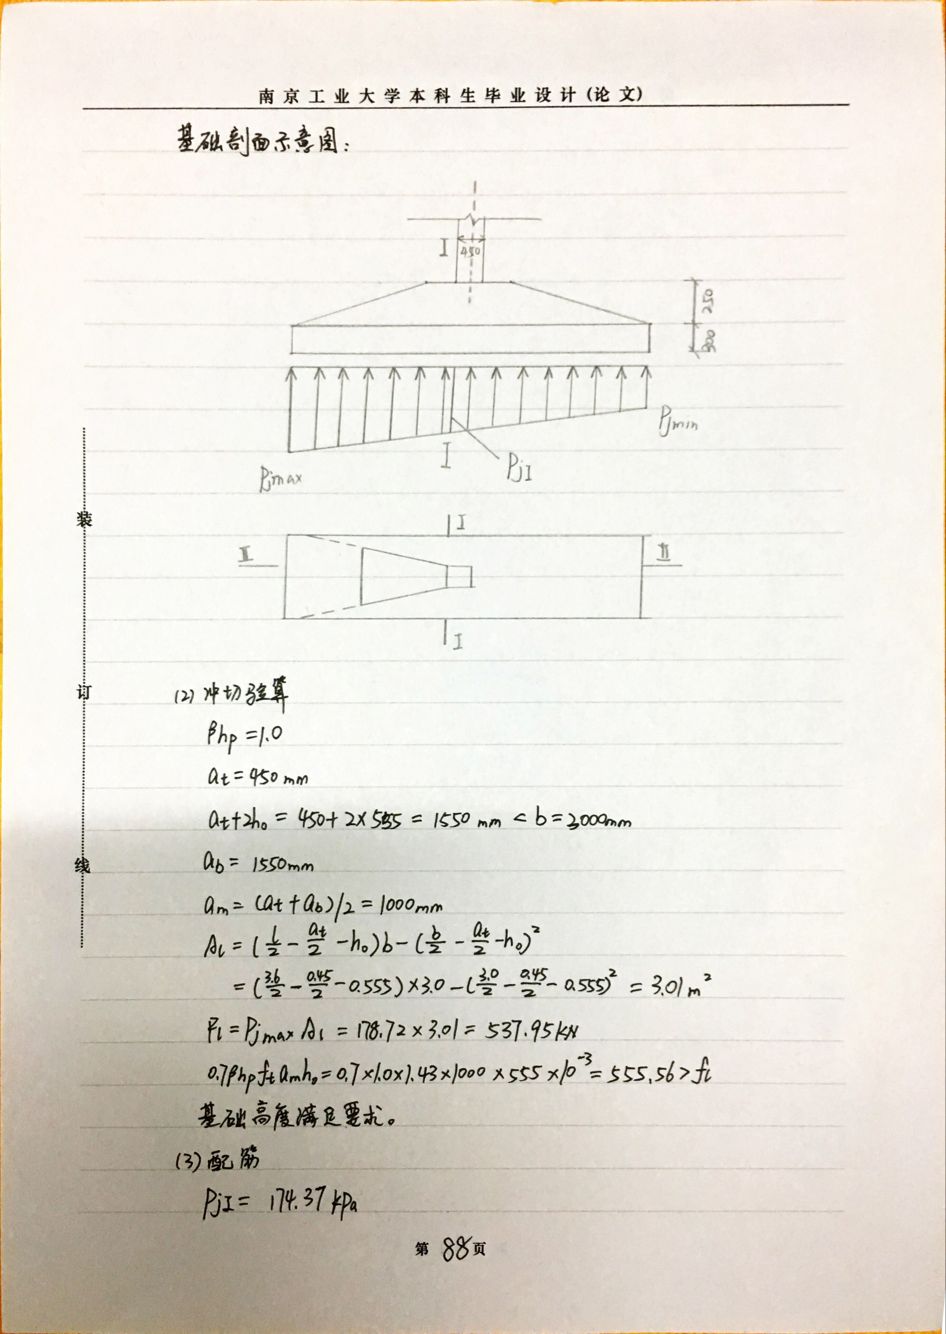 南京工业大学本科生毕业设计(论文)
基础剖面示意图：
I
450
250
300
Pjmax
I
PjI
Pjmin
I
II
II
I
装
订
线
(2) 冲切验算
βhp = 1.0
at = 450 mm
at + 2h₀ = 450 + 2×555 = 1550 mm < b = 3000mm
ab = 1550mm
am = (at + ab)/2 = 1000mm
Al = (l/2 - at/2 - h₀)b - (b/2 - at/2 - h₀)²
= (3.6/2 - 0.45/2 - 0.555)×3.0 - (3.0/2 - 0.45/2 - 0.555)² = 3.01 m²
Fl = Pjmax Al = 178.72 × 3.01 = 537.95 kN
0.7βhp ft am h₀ = 0.7×1.0×1.43×1000×555×10⁻³ = 555.56 > fl
基础高度满足要求。
(3) 配筋
PjI = 174.37 kPa
第 88 页